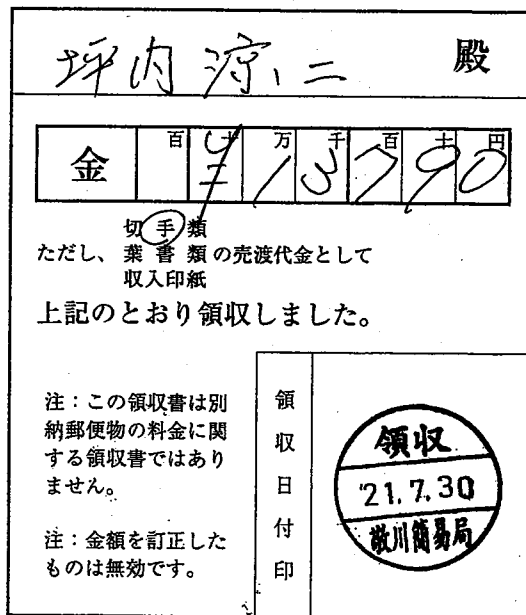 坪内涼二 殿
金 百 十 万 千 百 十 円
¥13790
切手類
ただし、葉書類の売渡代金として
収入印紙
上記のとおり領収しました。
注：この領収書は別
納郵便物の料金に関
する領収書ではあり
ません。
注：金額を訂正した
ものは無効です。
領収日付印
領収
'21.7.30
敬川簡易局